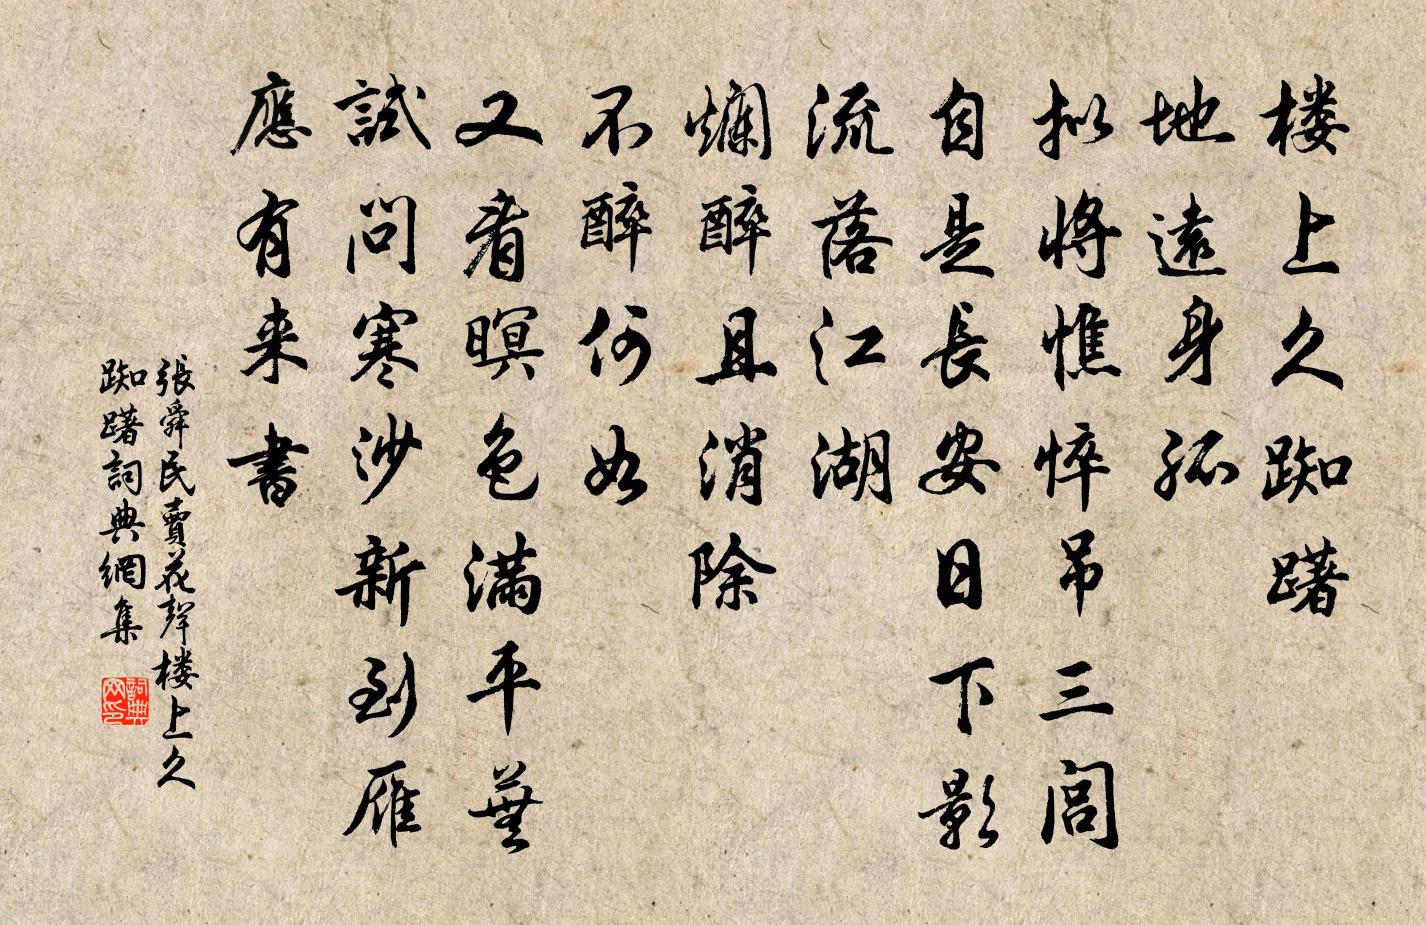 楼上久踟躇
地遠身孤
拟將憔悴吊三閭
自是長安日下影
流落江湖
爛醉且消除
不醉何如
又看暝色滿平蕪
試問寒沙新到雁
應有来書
張舜民賣花聲楼上久
踟躇詞典網集
詞典
网印